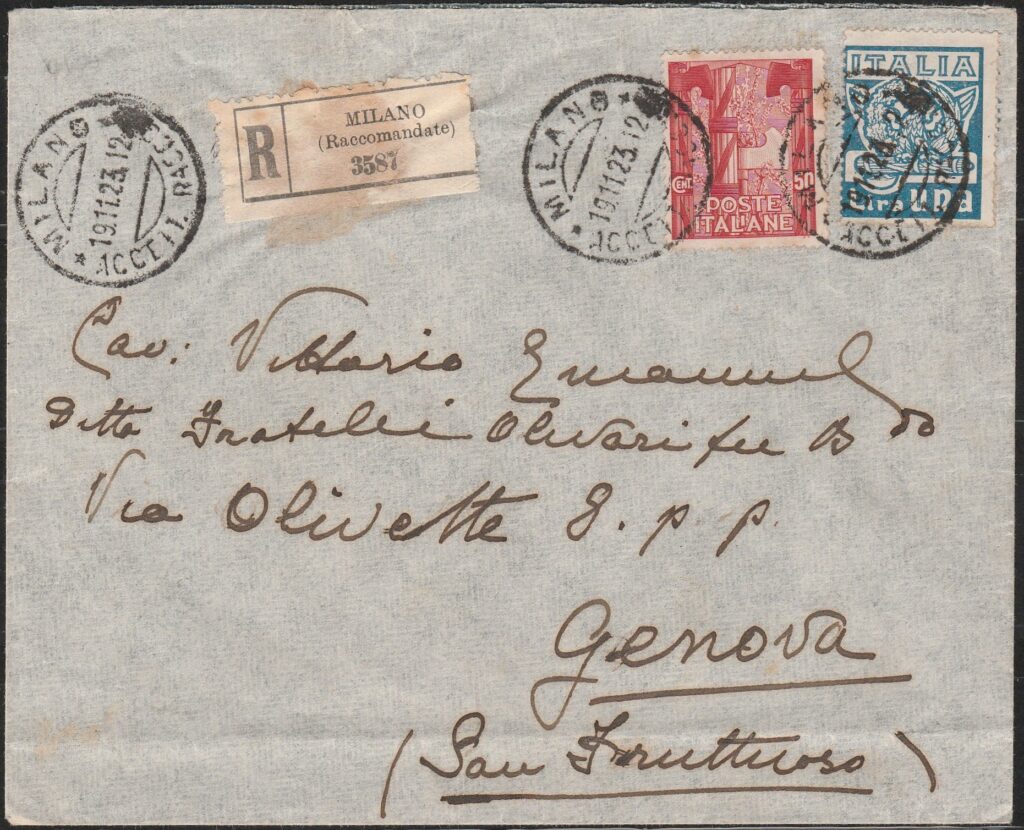 MILANO
19.11.23.12
ACCETT. RACC
R
MILANO
(Raccomandate)
3587
MILANO
19.11.23.12
ACCETT
CENT. 50
POSTE
ITALIANE
ITALIA
UNA
ACCETT
Cav: Vittorio Emanuel
Ditta Fratelli Olivari fu B do
Via Olivette 8. p. p.
Genova
(San Fruttuoso)